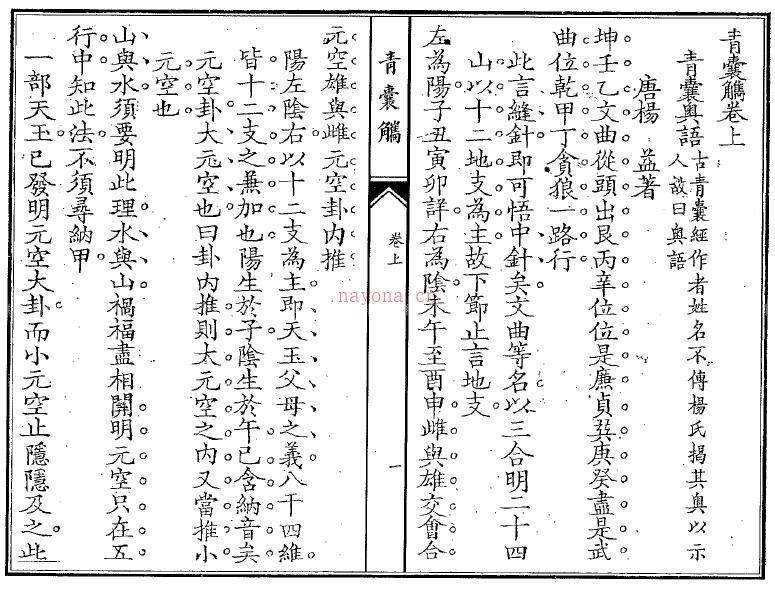 青囊觿卷上
青囊奧語古青囊經作者姓名不傳楊氏揭其奧以示
人故曰奧語
唐楊 益著
坤壬乙文曲從頭出艮丙辛位位是廉貞巽庚癸盡是武
曲位乾甲丁貪狼一路行
此言縫針即可悟中針矣文曲等名以三合明二十四
山以十二地支為主故下節止言地支
左為陽子丑寅卯詳右為陰未午至酉申雌與雄交會合
青囊觿
卷上
一
元空雄與雌元空卦內推
陽左陰右以十二支為主即天玉父母之義八干四維
皆十二支之兼加也陽生於子陰生於午已含納音矣
元空卦大元空也曰卦內推則大元空之內又當推小
元空也
山與水須要明此理水與山禍福盡相關明元空只在五
行中知此法不須尋納甲
一部天玉已發明元空大卦而小元空止隱隱及之此
nayona.cn